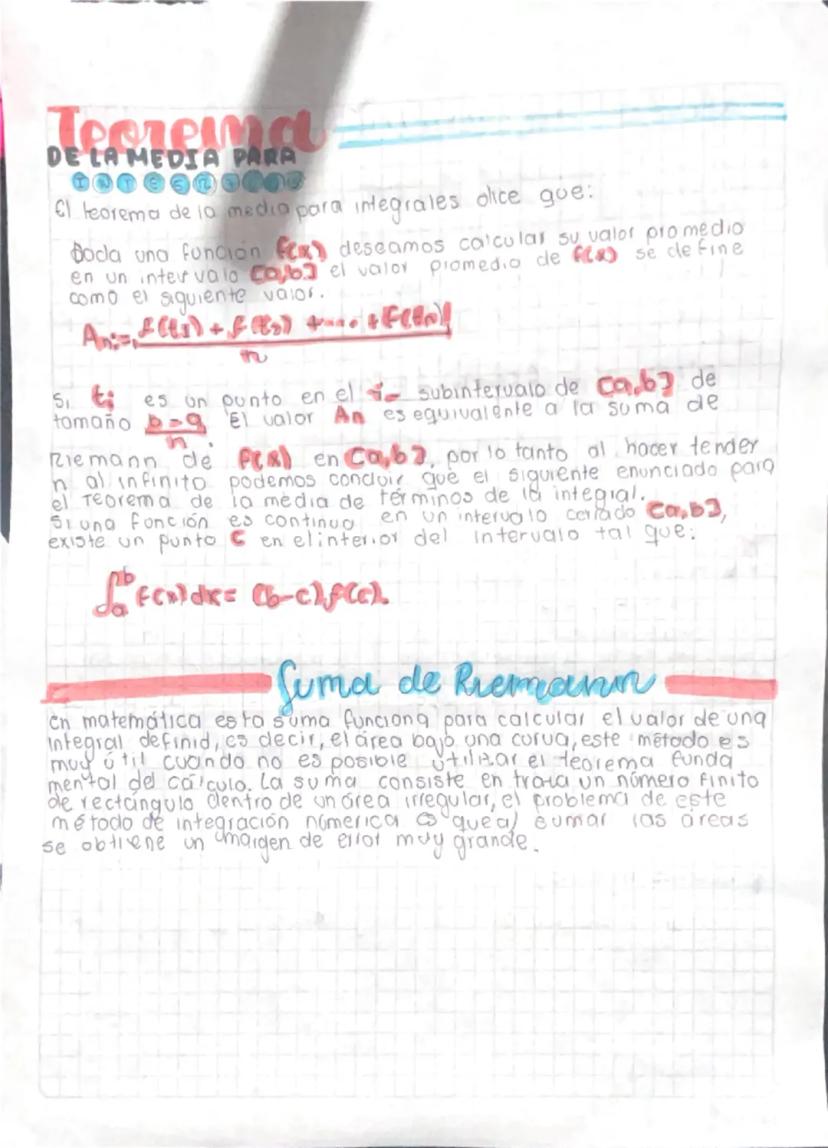 Teorema
DE LA MEDIA PARA
INTEGRALES
El teorema de la media para integrales dice que:
Dada una función f(x) deseamos calcular su valor promedio
en un intervalo [a,b] el valor promedio de f(x) se define
como el siguiente valor.
An:= f(t1) + f(t2) + .... + f(tn)
n
Si ti es un punto en el i- subintervalo de [a,b] de
tamaño b-a/n. El valor An es equivalente a la suma de
Riemann de f(x) en [a,b], por lo tanto al hacer tender
n al infinito podemos concluir que el siguiente enunciado para
el Teorema de la media de términos de la integral.
Si una función es continua en un intervalo cerrado [a,b],
existe un punto C en el interior del intervalo tal que:
∫ab f(x)dx = (b-c).f(c).
Suma de Riemann
En matemática esta suma funciona para calcular el valor de una
integral definid, es decir, el área bajo una curva, este método es
muy útil cuando no es posible utilizar el teorema funda
mental del cálculo. La suma consiste en traza un número finito
de rectángulo dentro de un área irregular, el problema de este
método de integración númerica es que al sumar las áreas
se obtiene un margen de error muy grande.